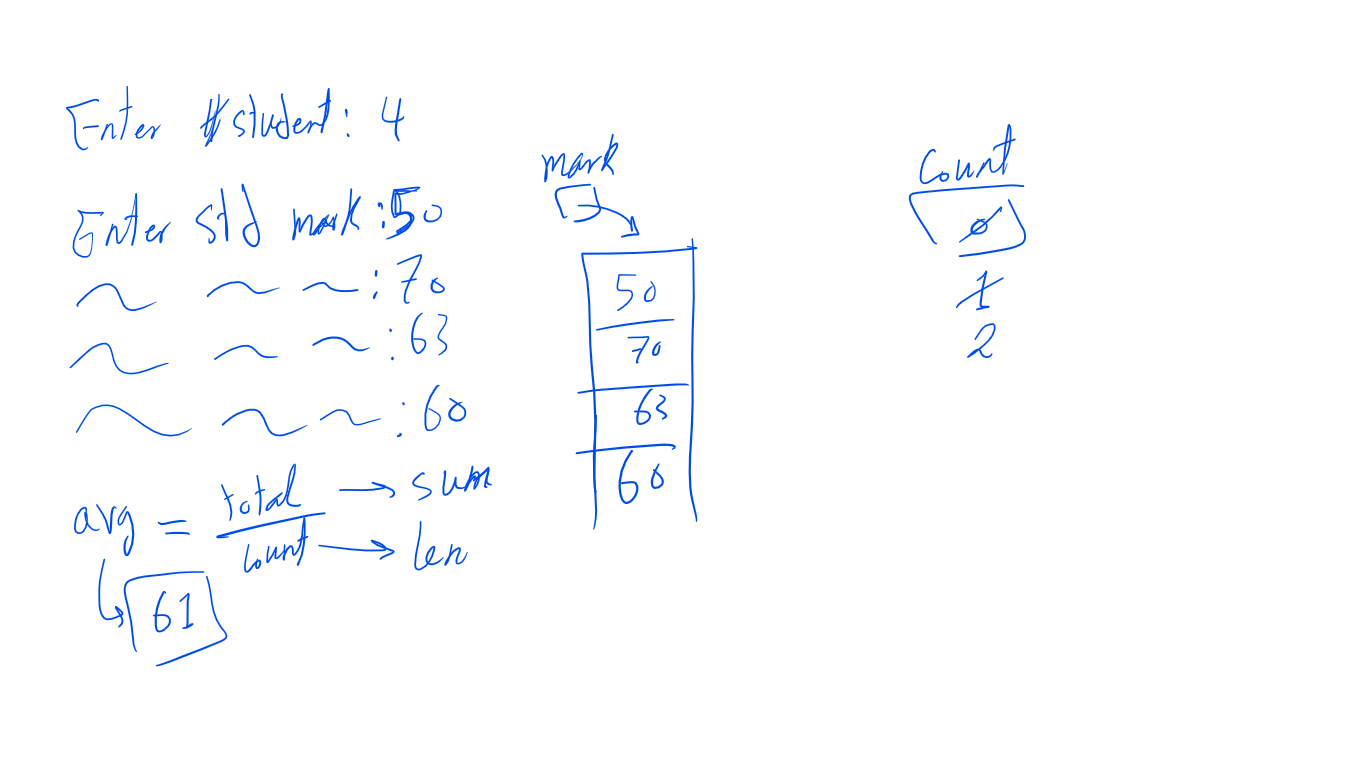 Enter #student: 4
Enter std mark:50
:70
:63
:60
avg = total / count
→ sum
→ len
61
mark
50
70
63
60
Count
0
1
2